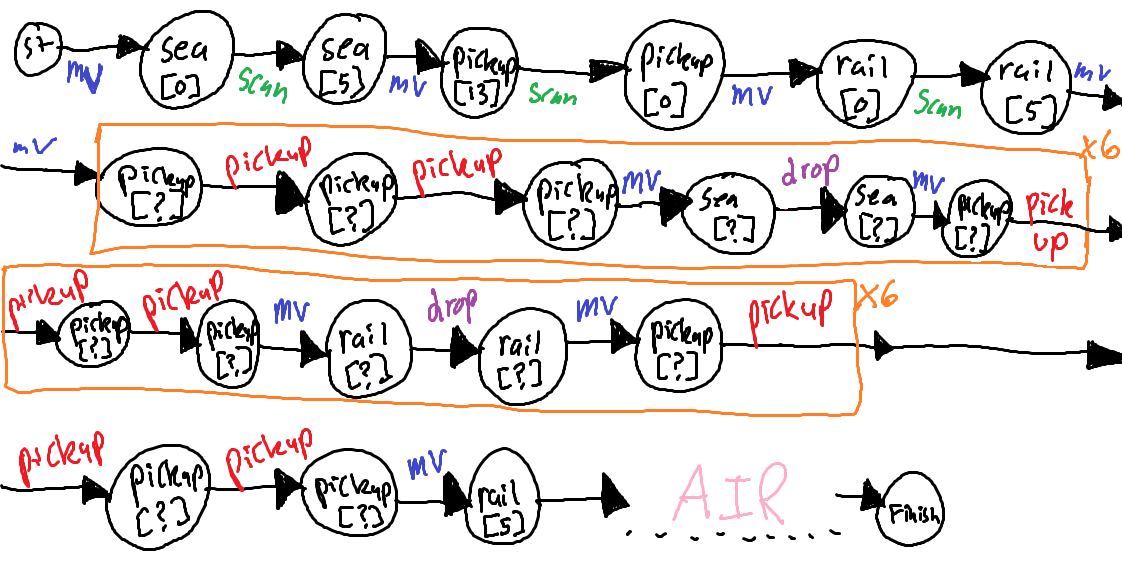 st mv sea [0] scan sea [5] mv pickup [13] scan pickup [0] mv rail [0] scan rail [5] mv
mv pickup [?] pickup pickup [?] pickup pickup [?] mv sea [?] drop sea [?] mv pickup [?] pick up x6
pickup pickup [?] pickup pickup [?] mv rail [?] drop rail [?] mv pickup [?] pickup x6
pickup pickup [?] pickup pickup [?] mv rail [5] AIR Finish